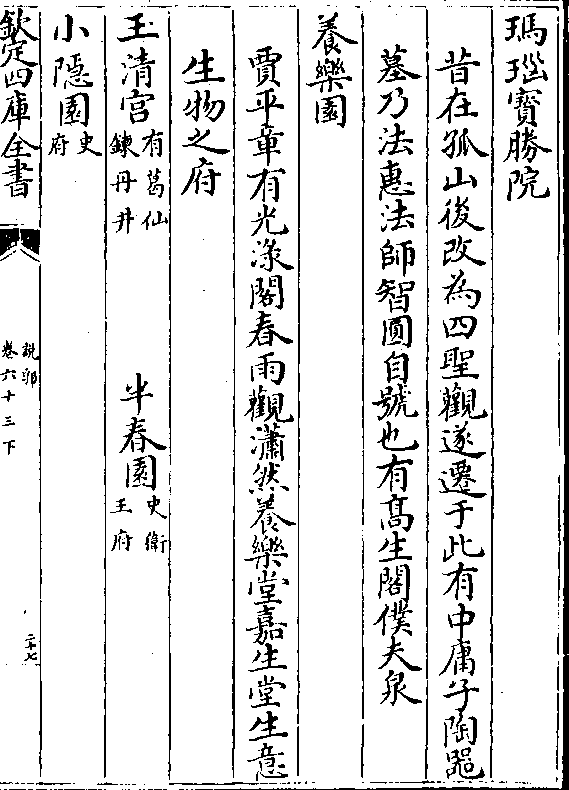 瑪瑙寶勝院
昔在孤山後改為四聖觀遂遷于此有中庸子陶器
墓乃法惠法師智圓自號也有高生閣僕夫泉
養樂園
賈平章有光渌閣春雨觀瀟然養樂堂嘉生堂生意
生物之府
玉清宮有葛仙鍊丹井 半春園史衛王府
小隱園史府
欽定四庫全書
說郛
卷六十三下
二十七